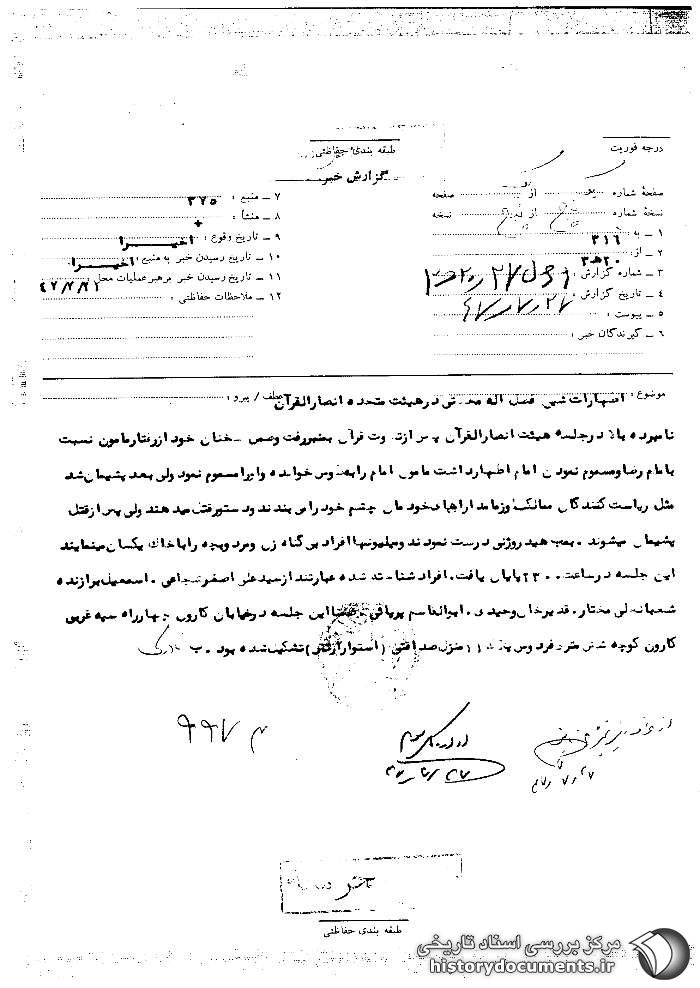 درجه فوریت
طبقه بندی حفاظتی
گزارش خبر
صفحهٔ شماره یک از یک صفحه
نسخهٔ شماره پنج از پنج نسخه
۱ ـ به : ۳۱۶
۲ ـ از : ۲۰ه۳
۳ ـ شماره گزارش :
۴ ـ تاریخ گزارش : ۴۷/۷/۲۷
۵ ـ پیوست :
۶ ـ گیرندگان خبر :
۷ ـ منبع : ۳۷۵
۸ ـ منشأ : +
۹ ـ تاریخ وقوع : اخیرا
۱۰ ـ تاریخ رسیدن خبر به منبع : اخیرا
۱۱ ـ تاریخ رسیدن خبر برهبر عملیات محل : ۴۷/۷/۲۱
۱۲ ـ ملاحظات حفاظتی :
موضوع : اظهارات شیخ فضل اله محلاتی در هیئت متحده انصارالقرآن عطف / پیرو :
نامبرده بالا در جلسه هیئت انصارالقرآن پس از تلاوت قرآن بمنبر رفت و ضمن سخنان خود از رفتار مامون نسبت
بامام رضا و مسموم نمودن امام اظهار داشت مامون امام را بعنوس خوانده و او را مسموم نمود ولی بعد پشیمان شد
مثل ریاست کنندگان ممالک وزمامداراهیاد خودمان چشم خود را می بندند و دستور قتل میدهند ولی پس از قتل
پشیمان میشوند . بمب هیدروژنی درست نمودند و میلیونها افراد بی گناه زن و مرد و بچه را با خاک یکسان مینمایند
این جلسه در ساعت ۲۳۰۰ پایان یافت . افراد شناخته شده عبارتند از سید علی اصغر شجاعی . اسمعیل برازنده
شعبانعلی مختار . قدیر خان وحیدی . ابوالقاسم بریافی . ضمنا این جلسه در خیابان کارون چهارراه سپه غربی
کارون کوچه شش متری فردوس پلاک ۱۱ منزل صداقتی (استوار ارتش) تشکیل شده بود . ب
۹۹۷ م
۴۷/۷/۲۷
۴۷/۷/۲۷
طبقه بندی حفاظتی
مرکز بررسی اسناد تاریخی
historydocuments.ir